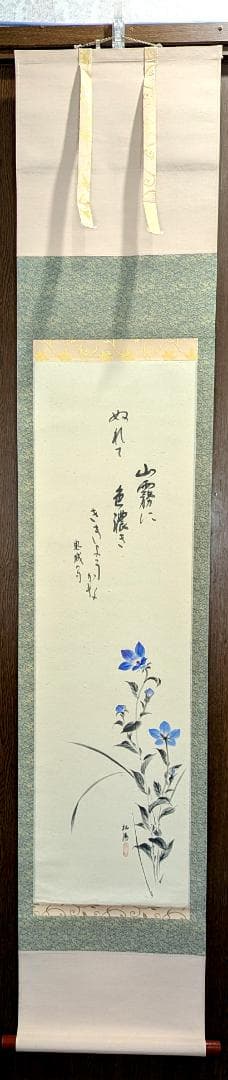 山霧に
ぬれて
色濃き
ききょうかな